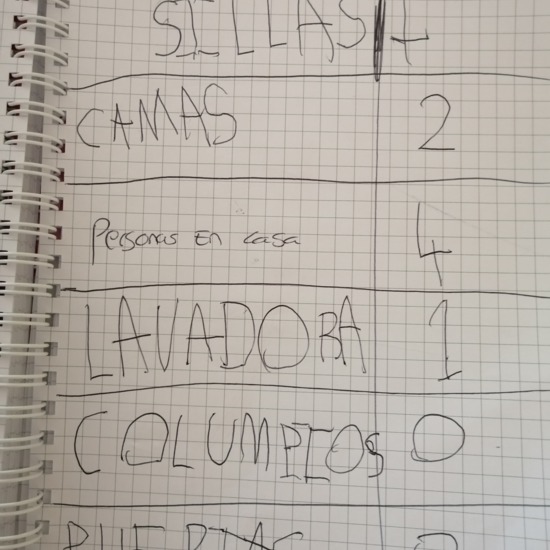 SILLAS
CAMAS 2
Personas En casa 4
LAVADORA 1
COLUMPIOS 0
PUERTAS